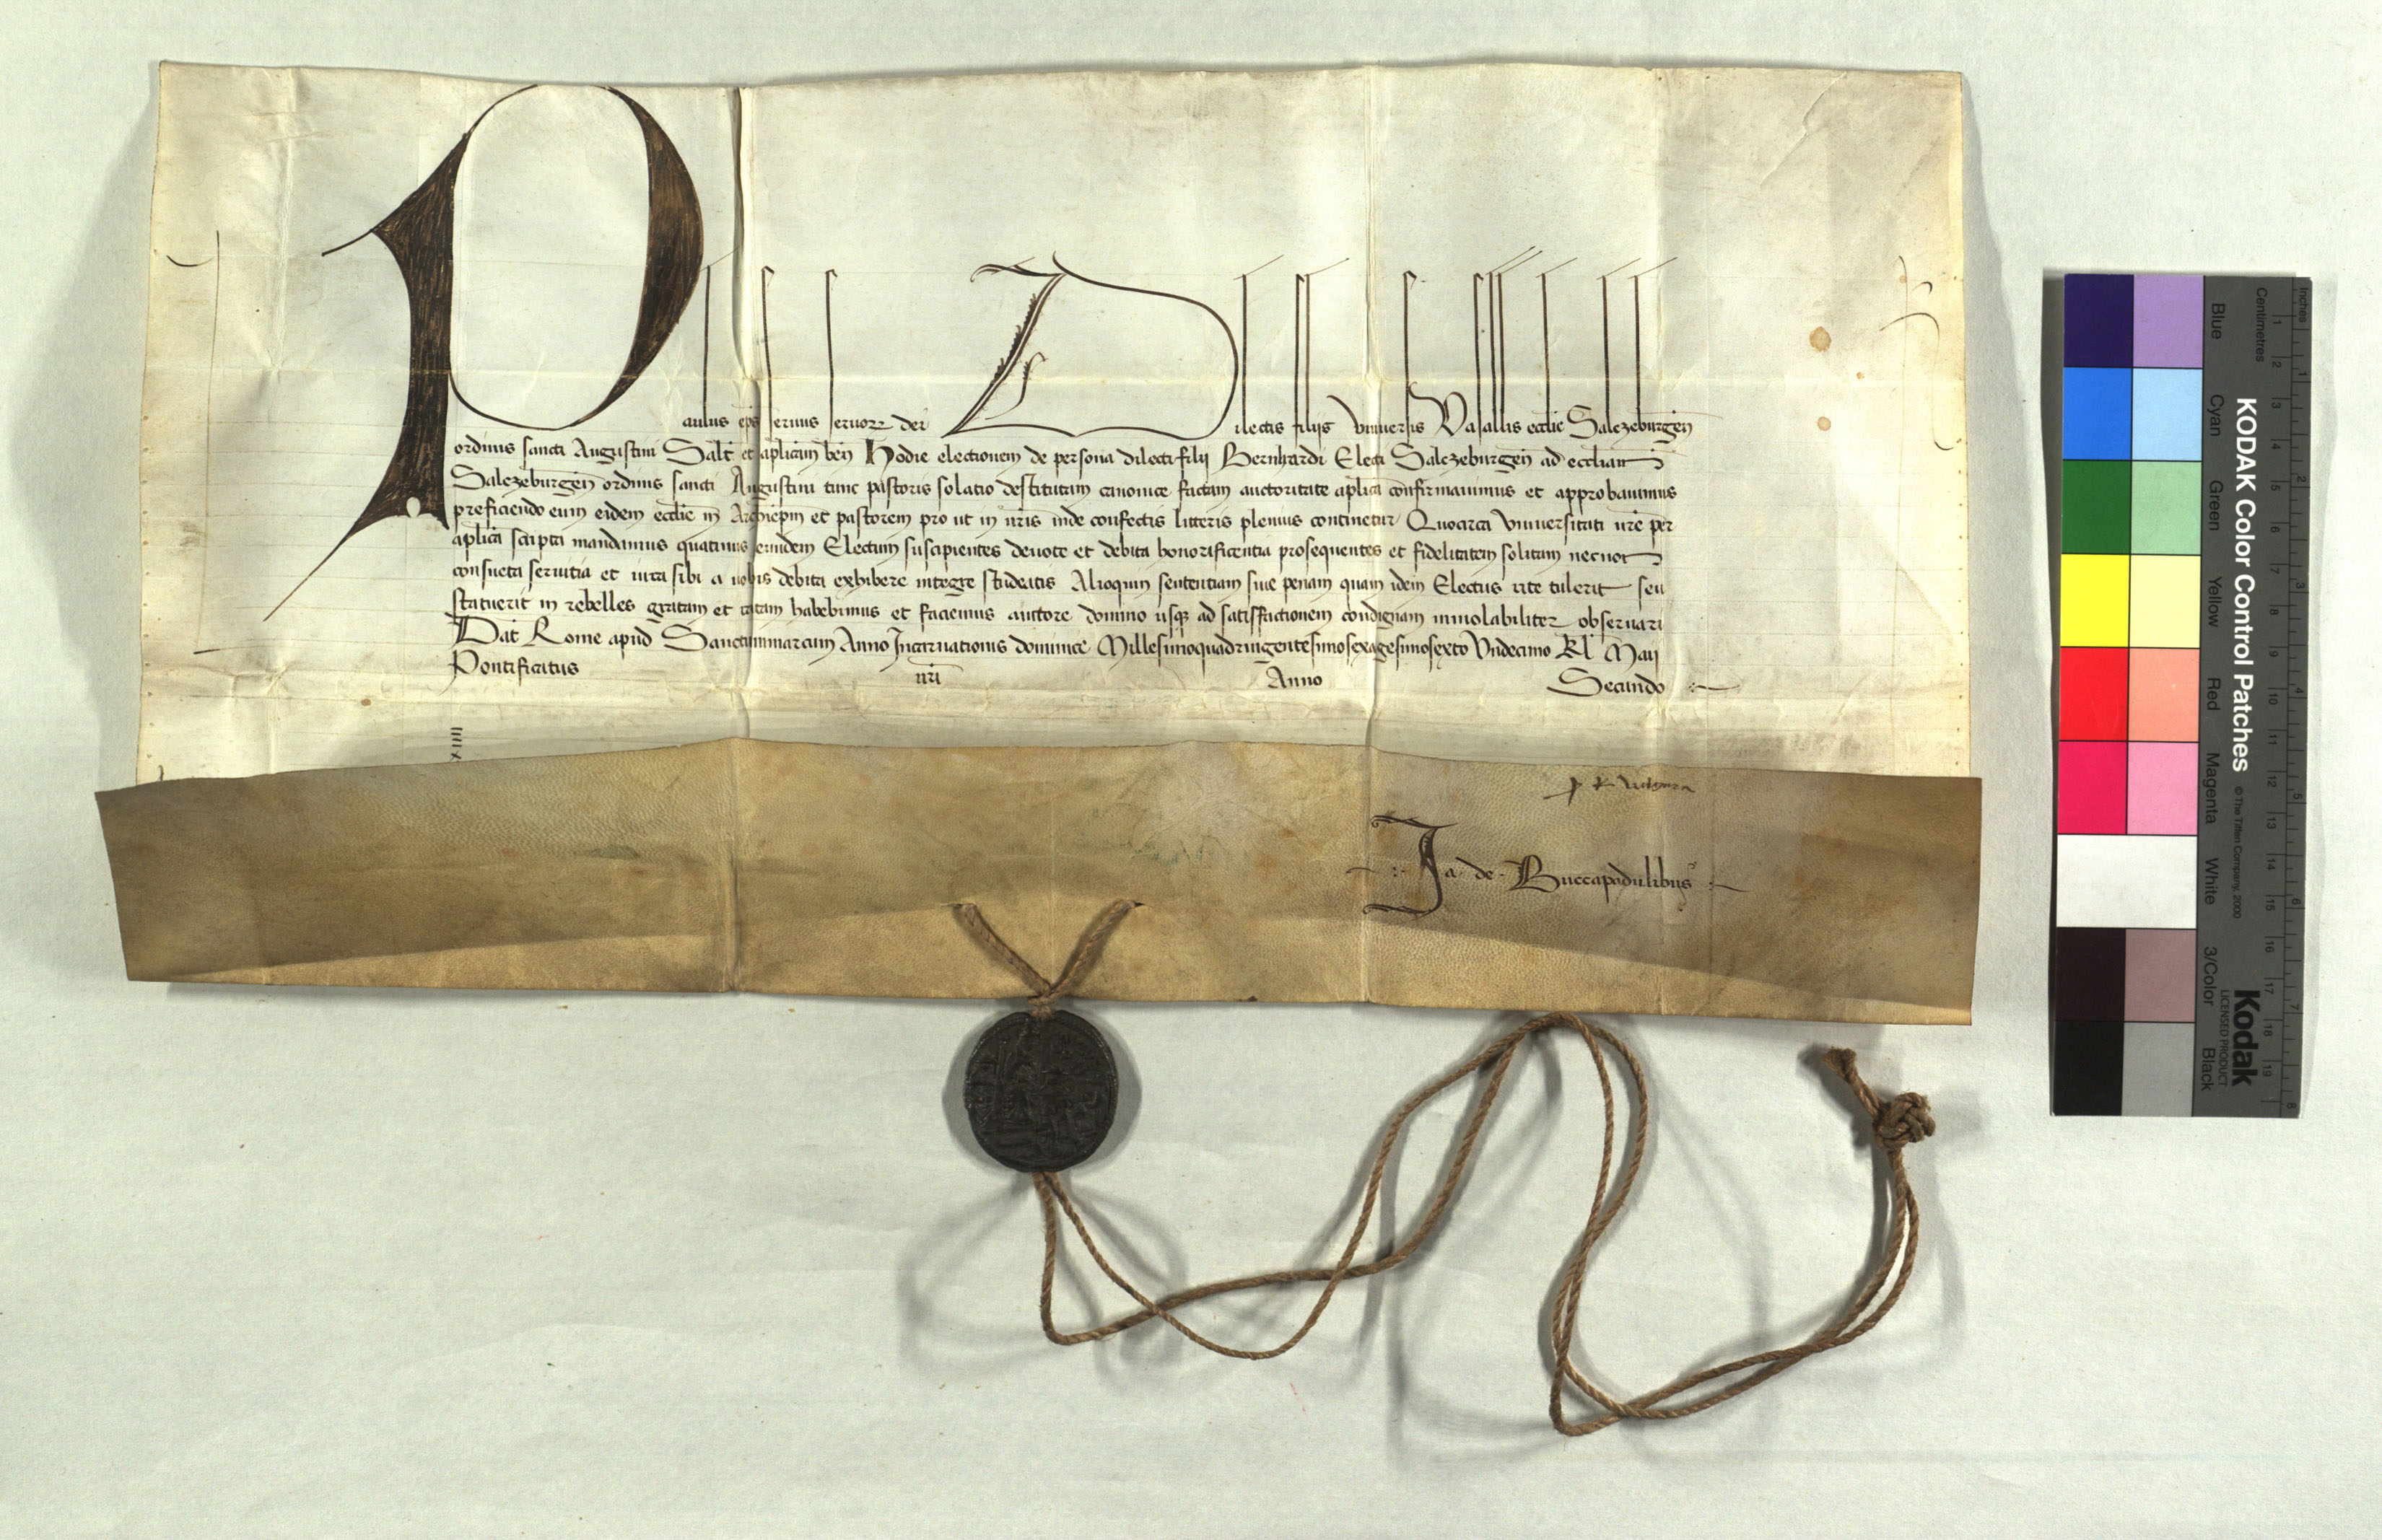 Paulus ep̄s seruus seruoꝝ dei Dilectis filijs Vniuersis Vasallis ecclīe Salczeburgen̄
ordinis sancti Augustini Salt̄ et aplicam̄ ben̄ Hodie electionem de persona dilecti filij Bernhardi Electi Salczeburgen̄ ad ecclīam
Salczeburgen̄ ordinis sancti Augustini tunc pastoris solatio destitutam canonice factam auctoritate aplica̅ confirmauimus et approbauimus
preficiendo eum eidem ecclīe in Archiepm̄ et pastorem pro ut in nr̄is inde confectis litteris plenius continetur Quocirca Vniuersitati vr̄e per
aplica̅ scripta mandamus quatinus eundem Electum suscipientes deuote et debita honorificentia prosequentes et fidelitatem solitam necnon
consueta seruitia et iura sibi a vobis debita exhibere integre studeatis Alioquin sententiam siue penam quam idem Electus rite tulerit seu
statuerit in rebelles gratam et ratam habebimus et faciemus auctore domino usqꝫ ad satisfactionem condignam inuiolabiliter obseruari
Dat̄ Rome apud Sanctummarcum Anno Incarnationis dominice Millesimoquadringentesimosexagesimosexto Vndecimo Kl̄ Maij
Pontificatus nr̄i Anno Secundo
Ja de Buccapadulibus
KODAK Color Control Patches
© The Tiffen Company, 2000
Kodak
LICENSED PRODUCT
Inches
Centimetres
Blue
Cyan
Green
Yellow
Red
Magenta
White
3/Color
Black
1 2 3 4 5 6 7 8 9 10 11 12 13 14 15 16 17 18 19
1 2 3 4 5 6 7 8